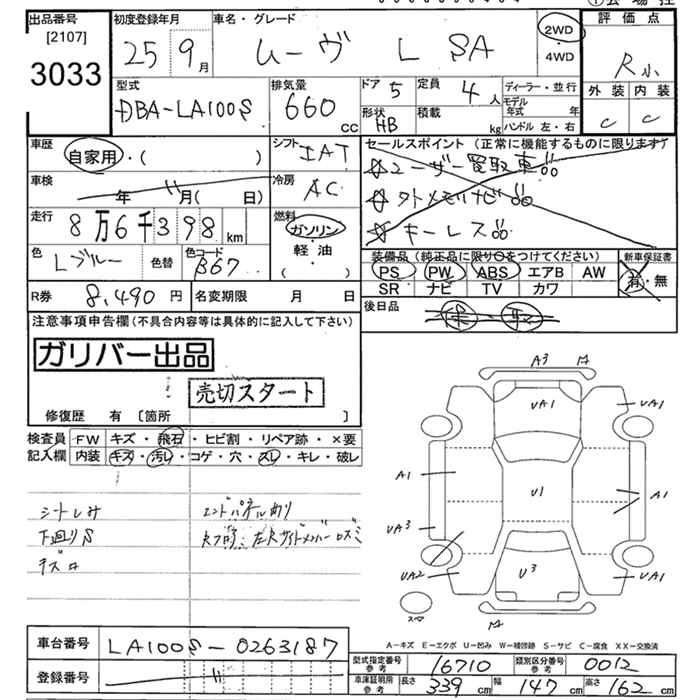 出品番号 初度登録年月 車名・グレード 評価点
[2107] 25 9月 ムーヴ L SA 2WD・4WD R小
3033
型式 排気量 ドア 5 定員 4人 ディーラー・並行 外装 内装
DBA-LA100S 660cc 形状 HB 積載 kg モデル年式 年 C C
ハンドル 左・右
車歴 シフト IAT セールスポイント (正常に機能するものに限ります)
自家用・( ) ☆ユーザー買取車!!
車検 年 月( 日) 冷房 AC ☆外メモリナビ!!
走行 8万6千398km 燃料 ☆キーレス!!
ガソリン
軽・油
( )
色 Lブルー 色替 色コード B67
装備品 (純正品に限り○をつけてください) 新車保証書
PS PW ABS エアB AW 有・無
SR ナビ TV カワ
R券 8,490円 名変期限 月 日 後日品 保・取
注意事項申告欄(不具合内容等は具体的に記入して下さい)
ガリバー出品
売切スタート
修復歴 有 〔箇所 〕
検査員 FW キズ・飛石・ヒビ割・リペア跡・×要
記入欄 内装 キズ・汚レ・コゲ・穴・スレ・キレ・破レ
シートしみ エンドパネルあり
下廻りS
A3
UA1 UA1
A1 U1 A1
UA3
UA2 U3 UA1
スペア
A－キズ E－エクボ U－凹み W－補修跡 S－サビ C－腐食 XX－交換済
車台番号 LA100S-0263187
登録番号
型式指定番号 参考 16710 類別区分番号 参考 0012
車庫証明用 参考 長さ 339cm 幅 147cm 高さ 162cm